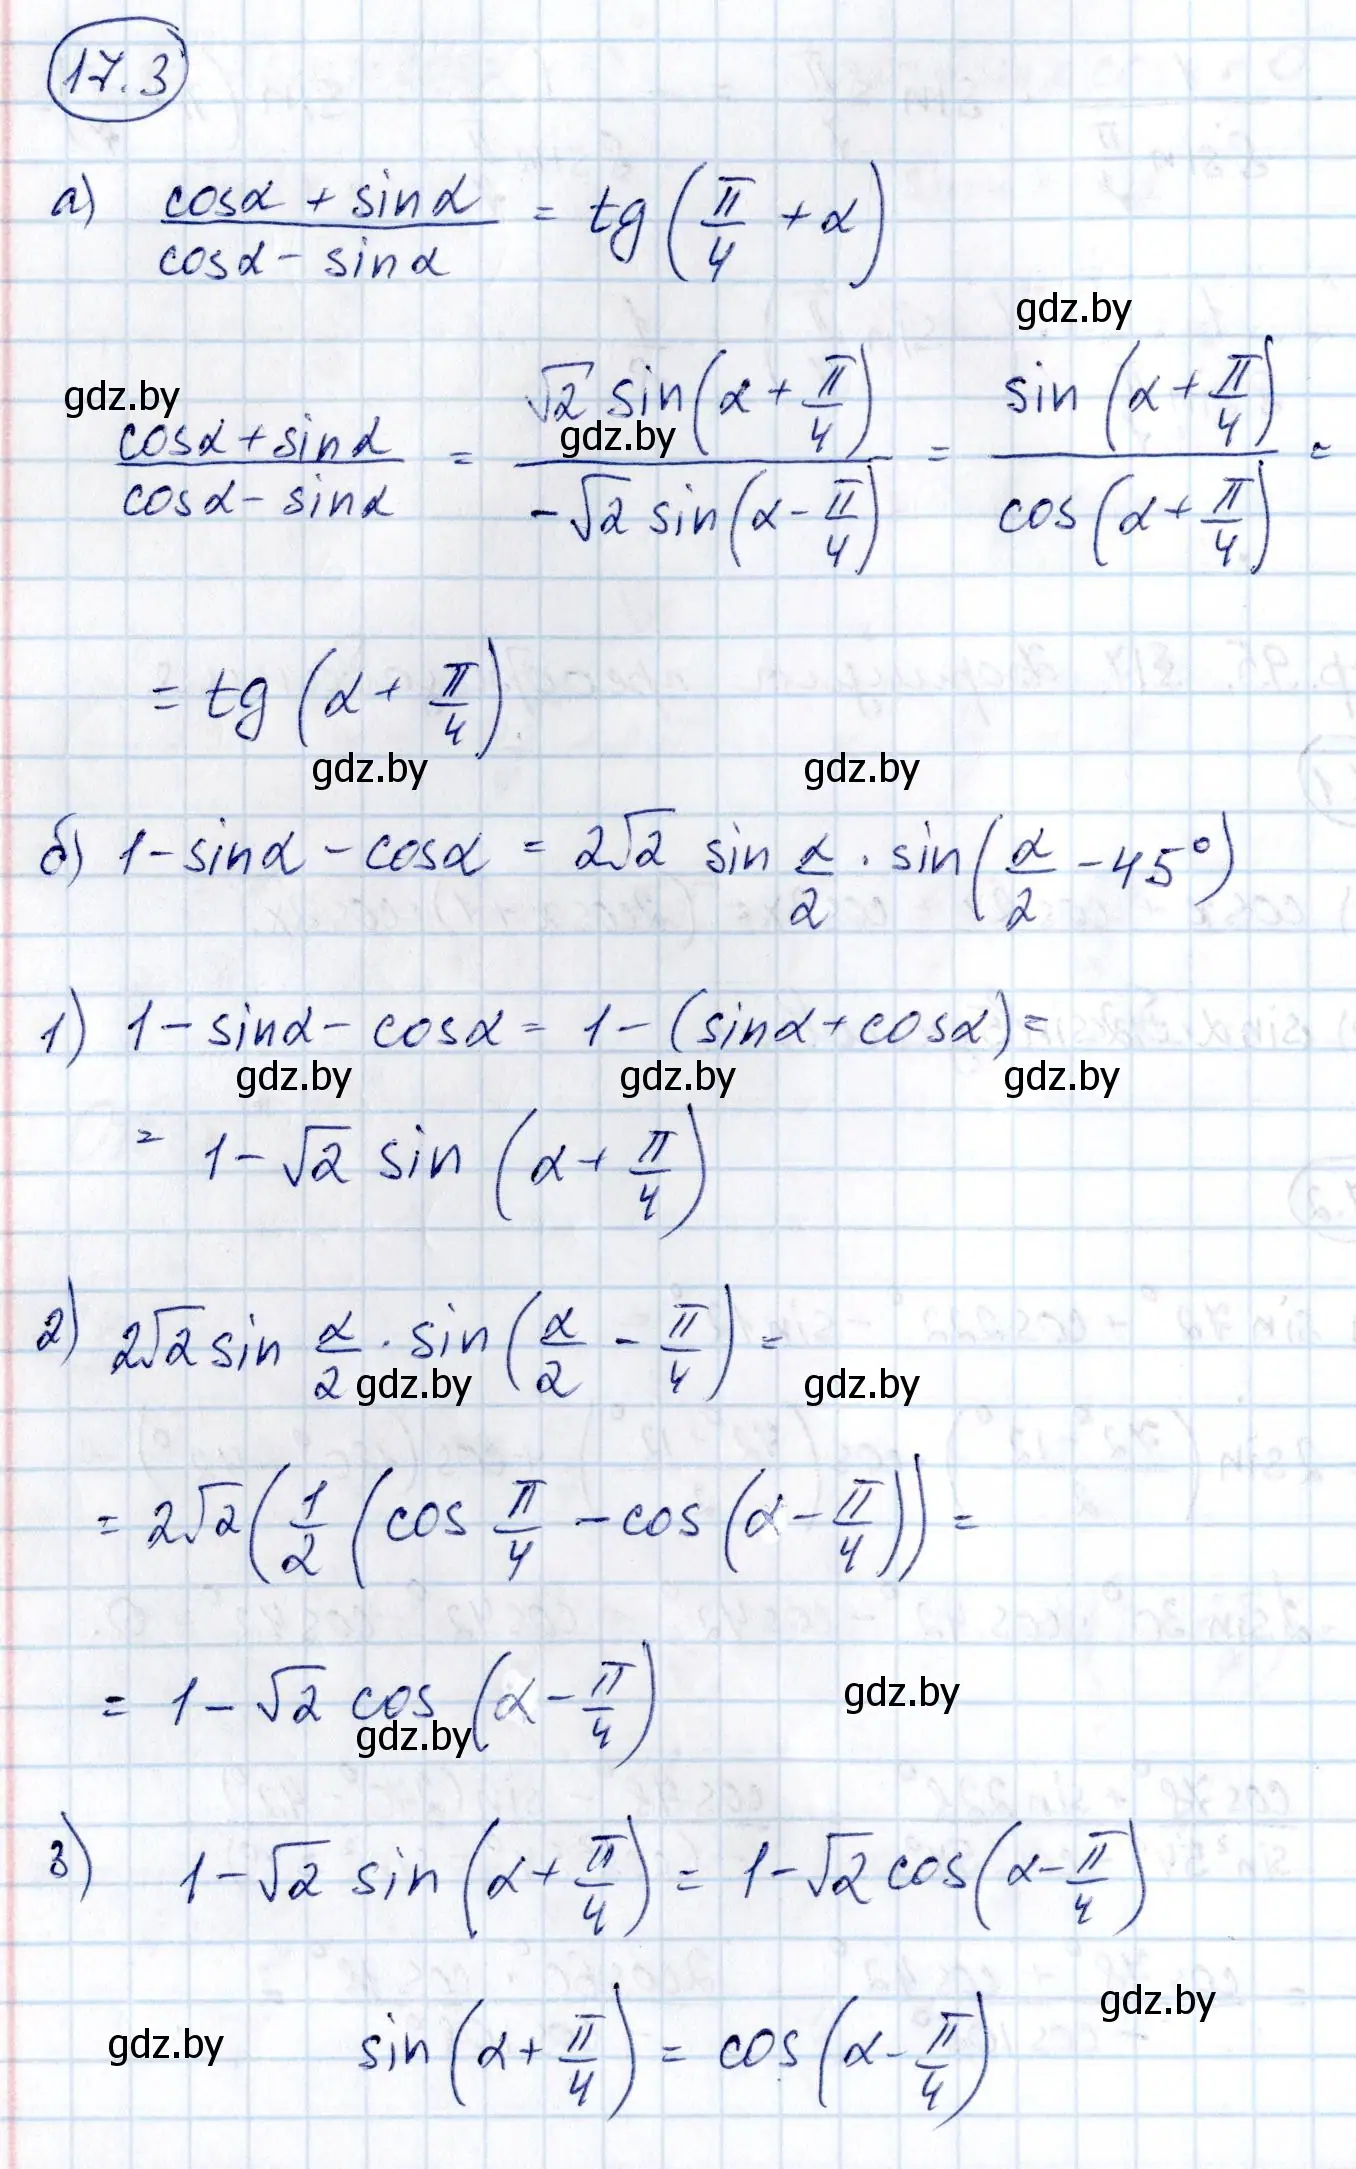 17.3
а) (cosα + sinα)/(cosα - sinα) = tg(π/4 + α)
gdz.by
gdz.by
gdz.by
(cosα + sinα)/(cosα - sinα) = (√2 sin(α + π/4))/(-√2 sin(α - π/4)) = (sin(α + π/4))/(cos(α + π/4)) =
= tg(α + π/4)
gdz.by gdz.by
б) 1 - sinα - cosα = 2√2 sin α/2 · sin(α/2 - 45°)
1) 1 - sinα - cosα = 1 - (sinα + cosα) =
gdz.by gdz.by gdz.by
= 1 - √2 sin(α + π/4)
2) 2√2 sin α/2 · sin(α/2 - π/4) =
gdz.by gdz.by
= 2√2(1/2(cos π/4 - cos(α - π/4)) =
= 1 - √2 cos(α - π/4)
gdz.by
gdz.by
3) 1 - √2 sin(α + π/4) = 1 - √2 cos(α - π/4)
gdz.by
gdz.by
sin(α + π/4) = cos(α - π/4)